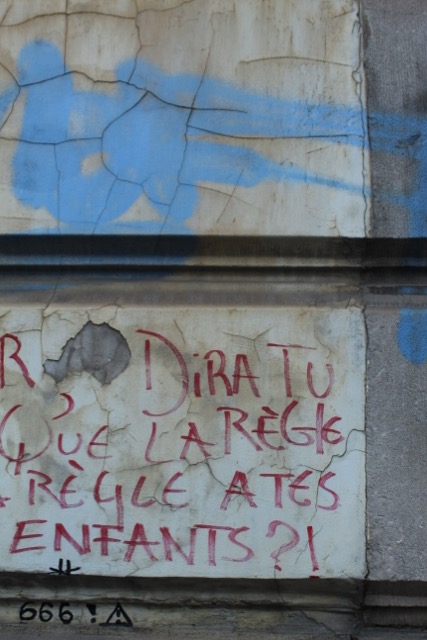 R DiRA TU
QUE LA RÈGlE
RÈGLE A TES
ENFANTS?!
666 !